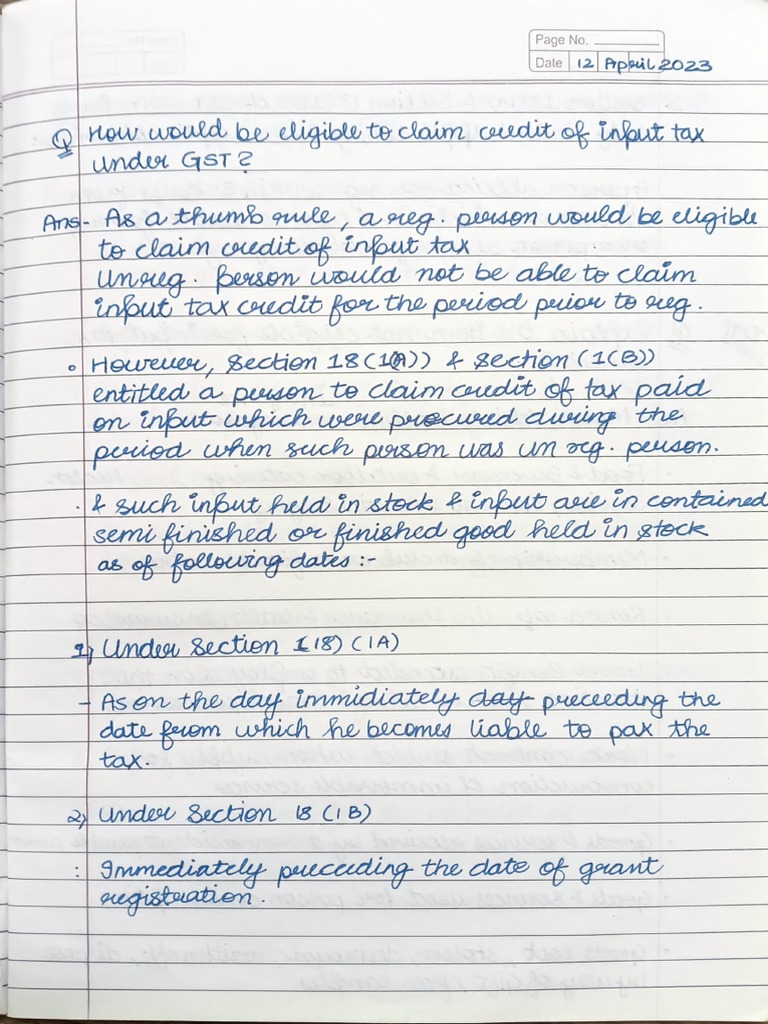 Page No.
Date 12 April 2023
Q How would be eligible to claim credit of input tax
under GST?
Ans- As a thumb rule, a reg. person would be eligible
to claim credit of input tax
Unreg. Person would not be able to claim
input tax credit for the period prior to reg.
• However, section 18(1(A)) & section (1(B))
entitled a person to claim credit of tax paid
on input which were procured during the
period when such person was un reg. person.
. & such input held in stock & input are in contained
semi finished or finished good held in stock
as of following dates :-
1) Under Section (18) (1A)
- As on the day immidiately day preceeding the
date from which he becomes liable to pax the
tax.
2) Under Section 18 (1B)
: Immediately preceeding the date of grant
registration.